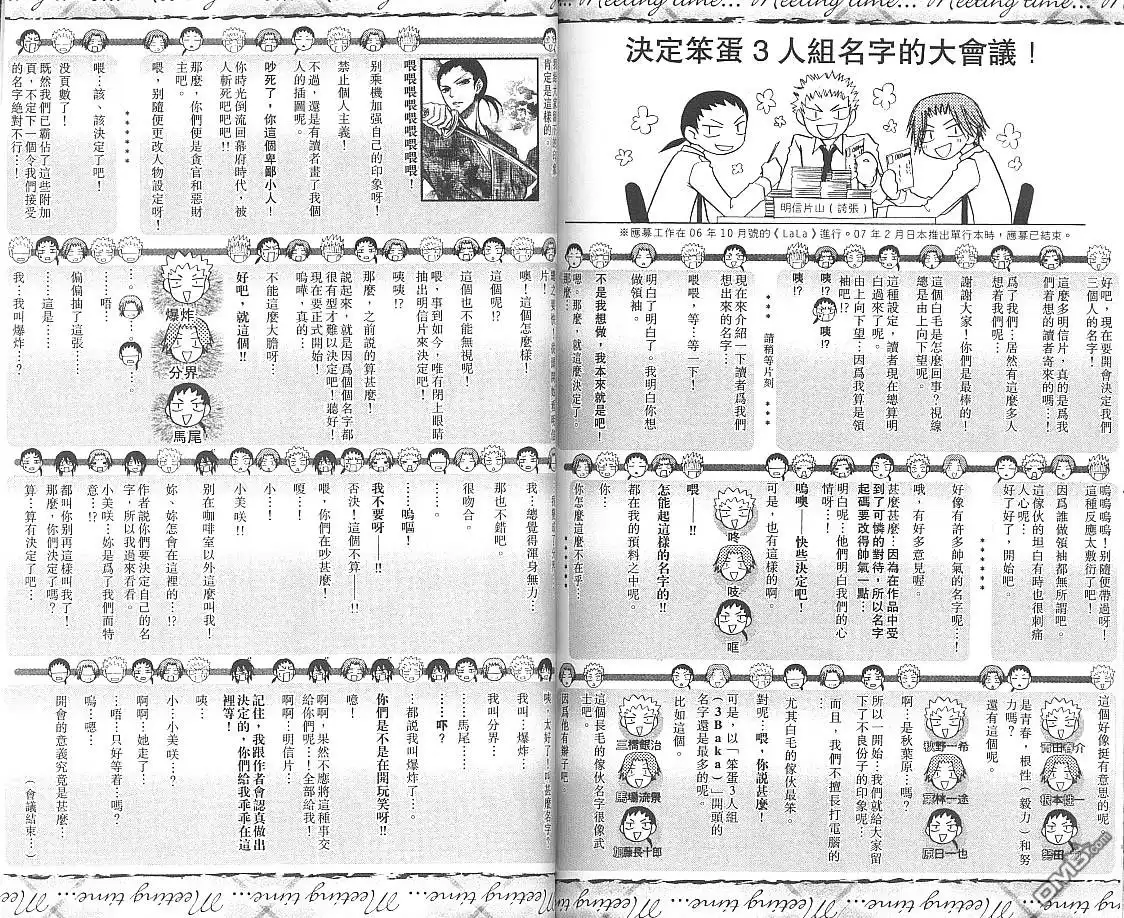 Meeting time... Meeting time... Meeting time...
決定笨蛋３人組名字的大會議！
明信片山（誇張）
※應募工作在06年10月號的《LaLa》進行。07年2月日本推出單行本時，應募已結束。
好吧，現在要開會決定我們
三個人的名字！
這麼多明信片，真的是為我
們着想的讀者來的嗎…！
為了我們…居然有這麼多人
想着我們呢…
謝謝大家！你們是最棒的！
這個白毛是怎麼回事？視線
總是由上向下望呢。
這種設定，讀者現在總算明
白過來了呢。
由上向下望…因為我算是領
袖吧！？
咦!?
咦!?
咦!?
＊＊＊ 請稍等片刻 ＊＊＊
現在來介紹一下讀者為我們
想出來的名字…
喂喂，等…等一下！
明白了明白了。我明白你想
做領袖。
不是我想做，我本來就是吧！
嗯。那麼，就這麼決定了。
那麼…
嗚嗚嗚嗚！別隨便帶過呀！
這種反應太敷衍了吧！
因為誰做領袖都無所謂吧。
這傢伙的坦白有時也很刺痛
人心呢…
好了好了，開始吧。
＊＊＊＊＊
好像有許多帥氣的名字呢…！
哦，有好多意見喔。
甚麼甚麼…因為在作品中受
到可憐的對待，所以名字
起碼要改得帥氣一點…
明白呢…他們明白我們的心
情呀…！
嗚噢——快些決定吧！
可是，也有這樣的啊。
咚
吱
哐
喂——!!
怎能起這樣的名字的!!
都在我的預料之中呢。
你…
你怎麼這麼不在乎…
＊＊＊＊＊
這個好像挺有意思的呢
是青春，根性（毅力）和努
力嗎？
還有這個呢。
秋野一希
森林一途
原日一也
啊…是秋葉原…嗎？
所以一開始…我們就給大家留
下了不良份子的印象呢…
而且，我們不擅長打電腦的
…
尤其白毛的傢伙最笨。
對呢…喂，你說甚麼！
可是，以「笨蛋３人組
（3Baka）」開頭的
名字還是最多的呢。
比如這個。
三橋銀治
馬場流景
加藤長十郎
這個長毛的傢伙名字很像武
士吧。
因為他有辮子吧。
肯定是這樣的。
喂喂喂喂喂喂喂喂！
別乘機加强自己的印象呀！
禁止個人主義！
不過，還是有讀者畫了我個
人的插圖呢。
吵死了，你這個卑鄙小人！
你時光倒流回幕府時代，被
人斬死吧吧吧!!
那麼，你們便是貪官和惡財
主吧。
喂，別隨便更改人物設定呀！
＊＊＊＊＊
喂…該、該決定了吧！
没頁數了！
既然我們已霸佔了這些附加
頁，不定下一個令我們接受
的名字絶對不行…！
噢！這個怎麼樣！
這個呢!?
這個也不能無視呢！
喂，事到如今，唯有閉上眼睛
抽出明信片來決定吧！
咦咦!?
那麼，之前説的算甚麼！
説起來，就是因為個名字都
很有型才難以決定吧！聽好！
現在要正式開始！
嗚呼，真的…
不能這麼大膽呀！
好吧，就這個!!
爆炸
分界
馬尾
…。
…。
…。
……唔…
偏偏抽了這張…
……這是…
我…我叫爆炸…？
我…總覺得渾身無力…
那也不錯吧。
很吻合。
……。
……嗚嘔！
我不要呀——!!
否決！這個不算——!!
喂，你們在吵甚麼！
嗄…
小…！
小美咲!!
別在咖啡室以外這麼叫我！
妳、妳怎會在這裡的…!?
作者說你們要決定自己的名
字，所以我過來看看。
小美咲…妳是為了我們而特
意…!?
都叫你别再這樣叫我了！
那麼，你們決定了嗎？
算…算有決定了吧…
咦…太好了！叫甚麼名字？
我叫…爆炸…
我叫分界…
……馬尾…
……吓？
…都說我叫爆炸了…。
你們是不是在開玩笑呀!!
噫！
啊啊！果然不應將這種事交
給你們呢…！全部給我！
啊啊…明信片…
記住，我跟作者會認真做出
決定的，你們給我乖乖在這
裡等！
咦…
小…小美咲…？
啊啊…她走了…
…唔…只好等着…嗎？
嗚…嗯…
開會的意義究竟是甚麼…
（會議結束…）
Meeting time... Meeting time... Meeting time...